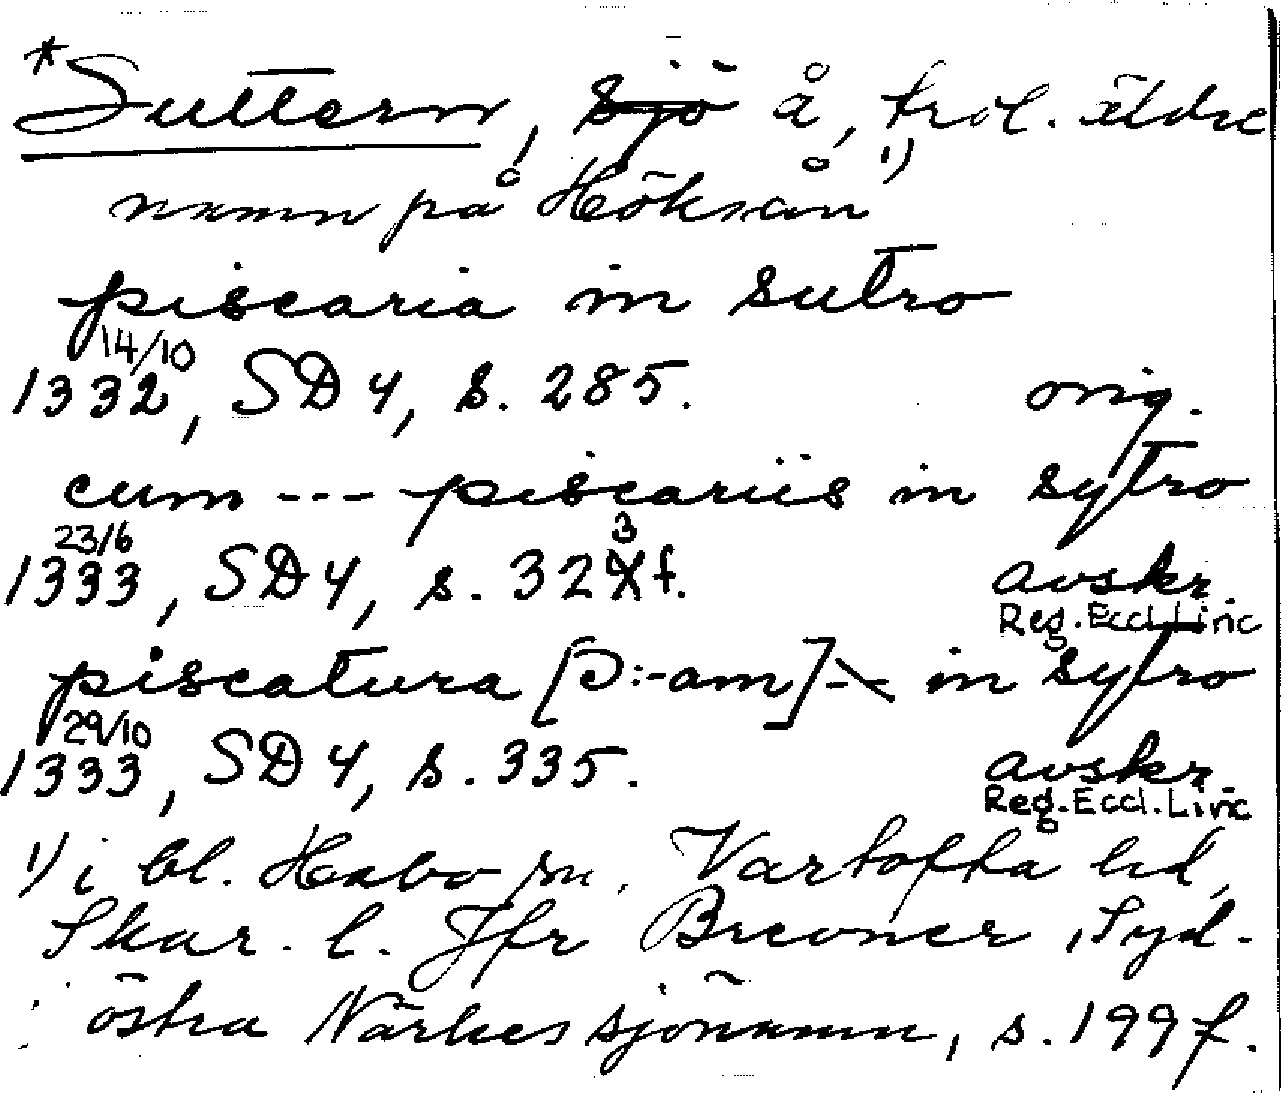 *Suttern, sjö å, trol. äldre
namn på Höksån 1)
piscaria in sutro
14/10
1332, SD 4, s. 285. orig.
cum --- piscariis in sytro
23/6 3
1333, SD 4, s. 32Xf. avskr.
Reg. Eccl. Linc
piscatura [ɔ: -am] -- in sytro
29/10
1333, SD 4, s. 335. avskr.
Reg. Eccl. Linc
1) i bl. Habo sn, Vartofta hd,
Skar. l. Jfr Brevner, Syd-
östra Närkes sjönamn, s. 199 f.